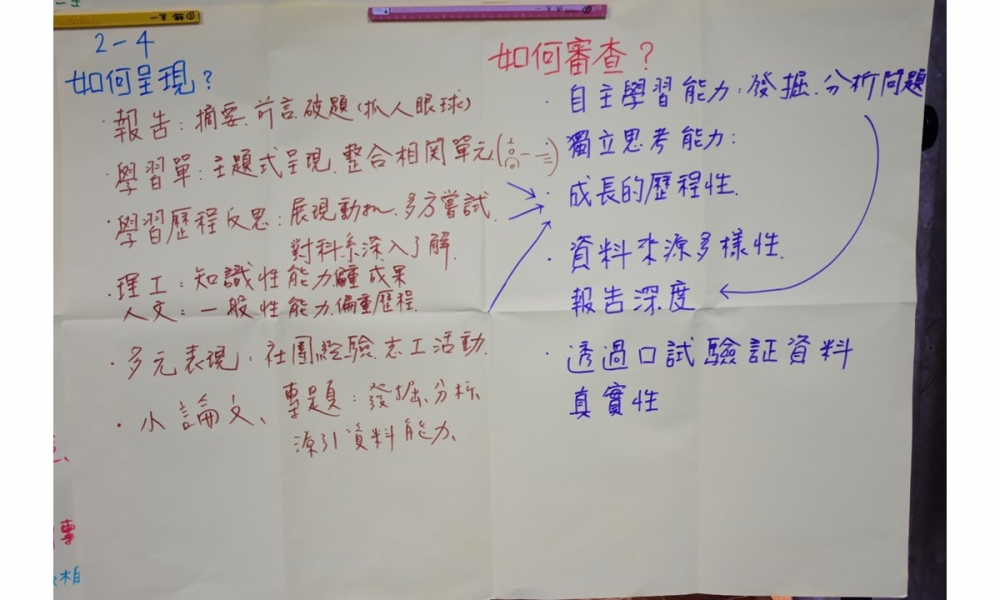 2-4
如何呈現?
·報告:摘要、前言、破題(抓人眼球)
·學習單:主題式呈現、整合相関單元(高一高三)
·學習歷程反思:展現動机、多方嘗試、
對科系深入了解.
·理工:知識性能力 成果
人文:一般性能力、偏重歷程.
·多元表現:社團經驗、志工活動.
·小論文、專題:發掘、分析、
源引資料能力、
如何審查?
·自主學習能力:發掘、分析問題
獨立思考能力:
·成長的歷程性.
·資料來源多樣性.
報告深度
·透過口試驗証資料
真實性
專
柏